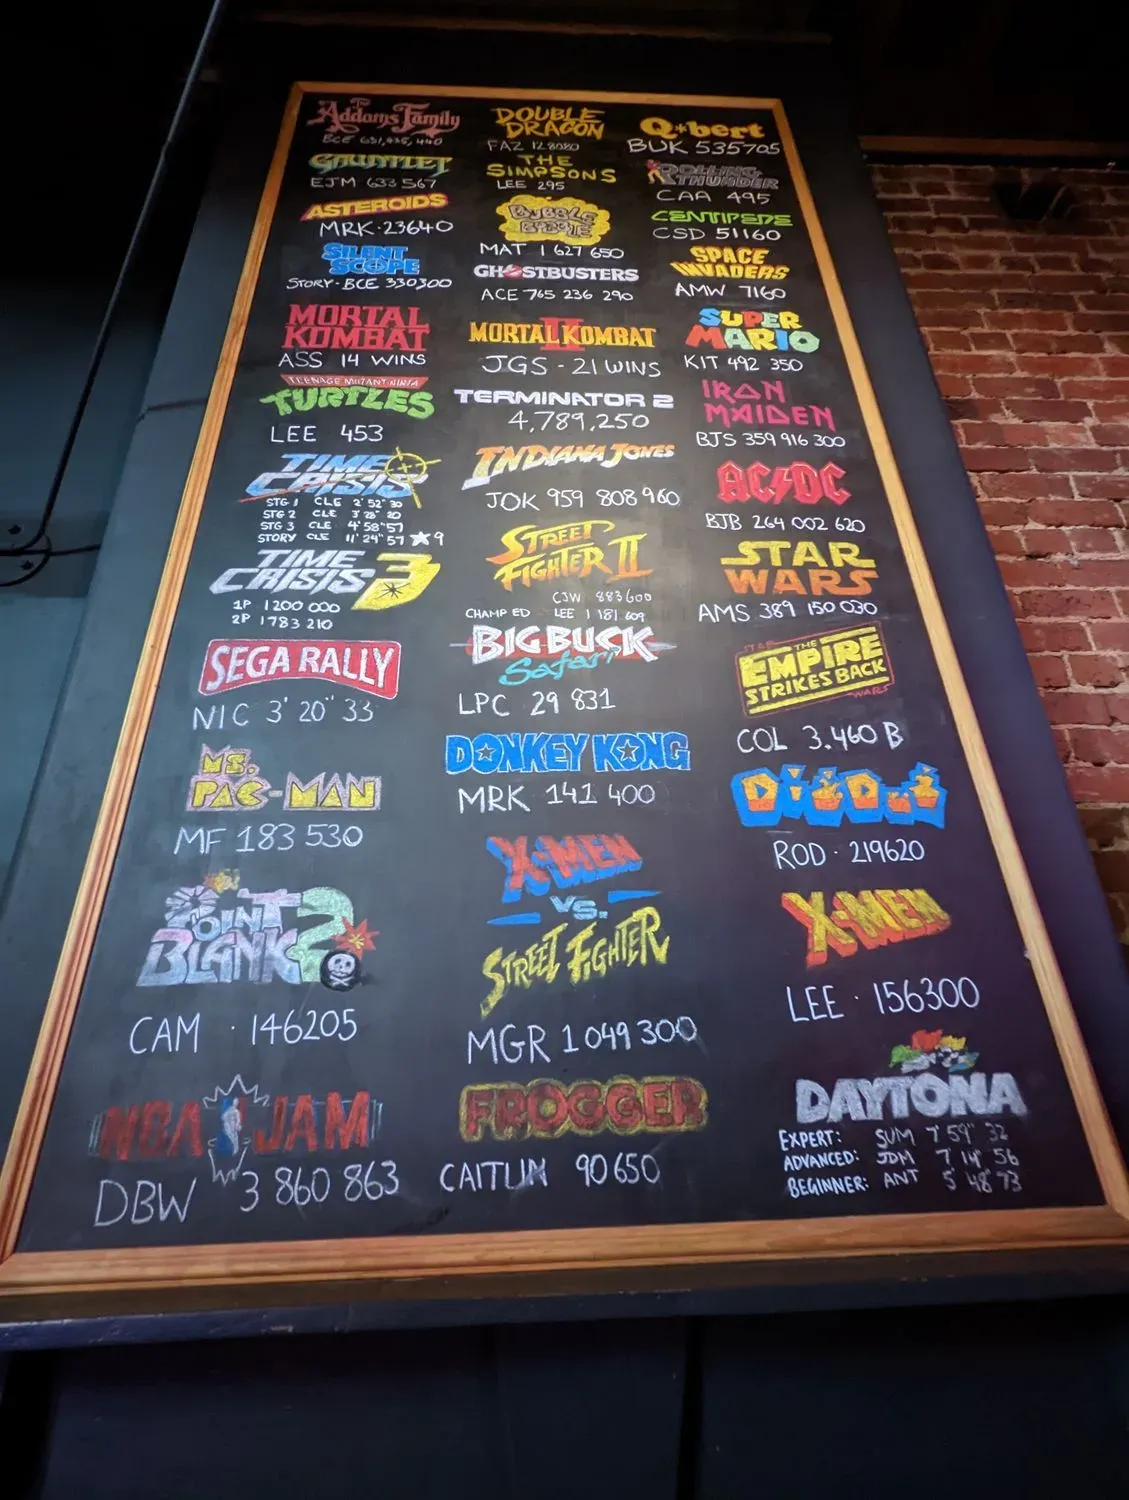 The Addams Family
BCE 631,435,440
GAUNTLET
EJM 633 567
ASTEROIDS
MRK · 23640
SILENT
SCOPE
STORY · BCE 330300
MORTAL
KOMBAT
ASS 14 WINS
TEENAGE MUTANT NINJA
TURTLES
LEE 453
TIME
CRISIS
STG 1 CLE 2' 52" 30
STG 2 CLE 3' 28" 20
STG 3 CLE 4' 58" 57
STORY CLE 11' 24" 57 ★ 9
TIME
CRISIS 3
1P 1 200 000
2P 1 783 210
SEGA RALLY
NIC 3' 20" 33
MS.
PAC-MAN
MF 183 530
POINT
BLANK 2
CAM · 146205
NBA JAM
DBW 3 860 863
DOUBLE
DRAGON
FAZ 128080
THE
SIMPSONS
LEE 295
BUBBLE
BOBBLE
MAT 1 627 650
GHOSTBUSTERS
ACE 765 236 290
MORTAL KOMBAT
II
JGS - 21 WINS
TERMINATOR 2
4,789,250
INDIANA JONES
JOK 959 808 960
STREET
FIGHTER II
CJW 883600
CHAMP ED LEE 1 181 609
BIG BUCK
Safari
LPC 29 831
DONKEY KONG
MRK 141 400
X-MEN
VS.
STREET FIGHTER
MGR 1 049 300
FROGGER
CAITLIN 90650
Q*bert
BUK 535705
ROLLING
THUNDER
CAA 495
CENTIPEDE
CSD 51160
SPACE
INVADERS
AMW 7160
SUPER
MARIO
KIT 492 350
IRON
MAIDEN
BJS 359 916 300
AC/DC
BJB 264 002 620
STAR
WARS
AMS 389 150 030
STAR
THE
EMPIRE
STRIKES BACK
WARS
COL 3.460 B
DiZD.J
ROD · 219620
X-MEN
LEE · 156300
DAYTONA
EXPERT: SUM 7' 59" 32
ADVANCED: JDM 7' 14" 56
BEGINNER: ANT 5' 48" 73